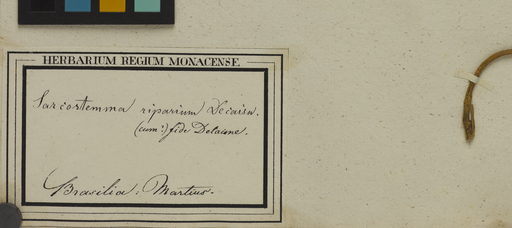 HERBARIUM REGIUM MONACENSE
Sarcostemma riparium Decaisn.
fide
Brasilia: Martius.